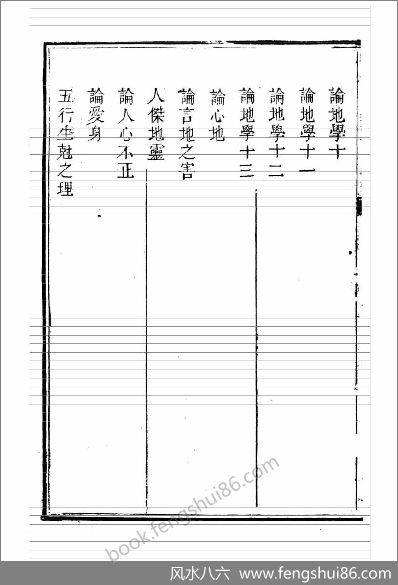 論地學十
論地學十一
論地學十二
論地學十三
論心地
論言地之害
人傑地靈
論人心不正
論愛身
五行生尅之理
book.fengshui86.com
风水八六 www.fengshui86.com